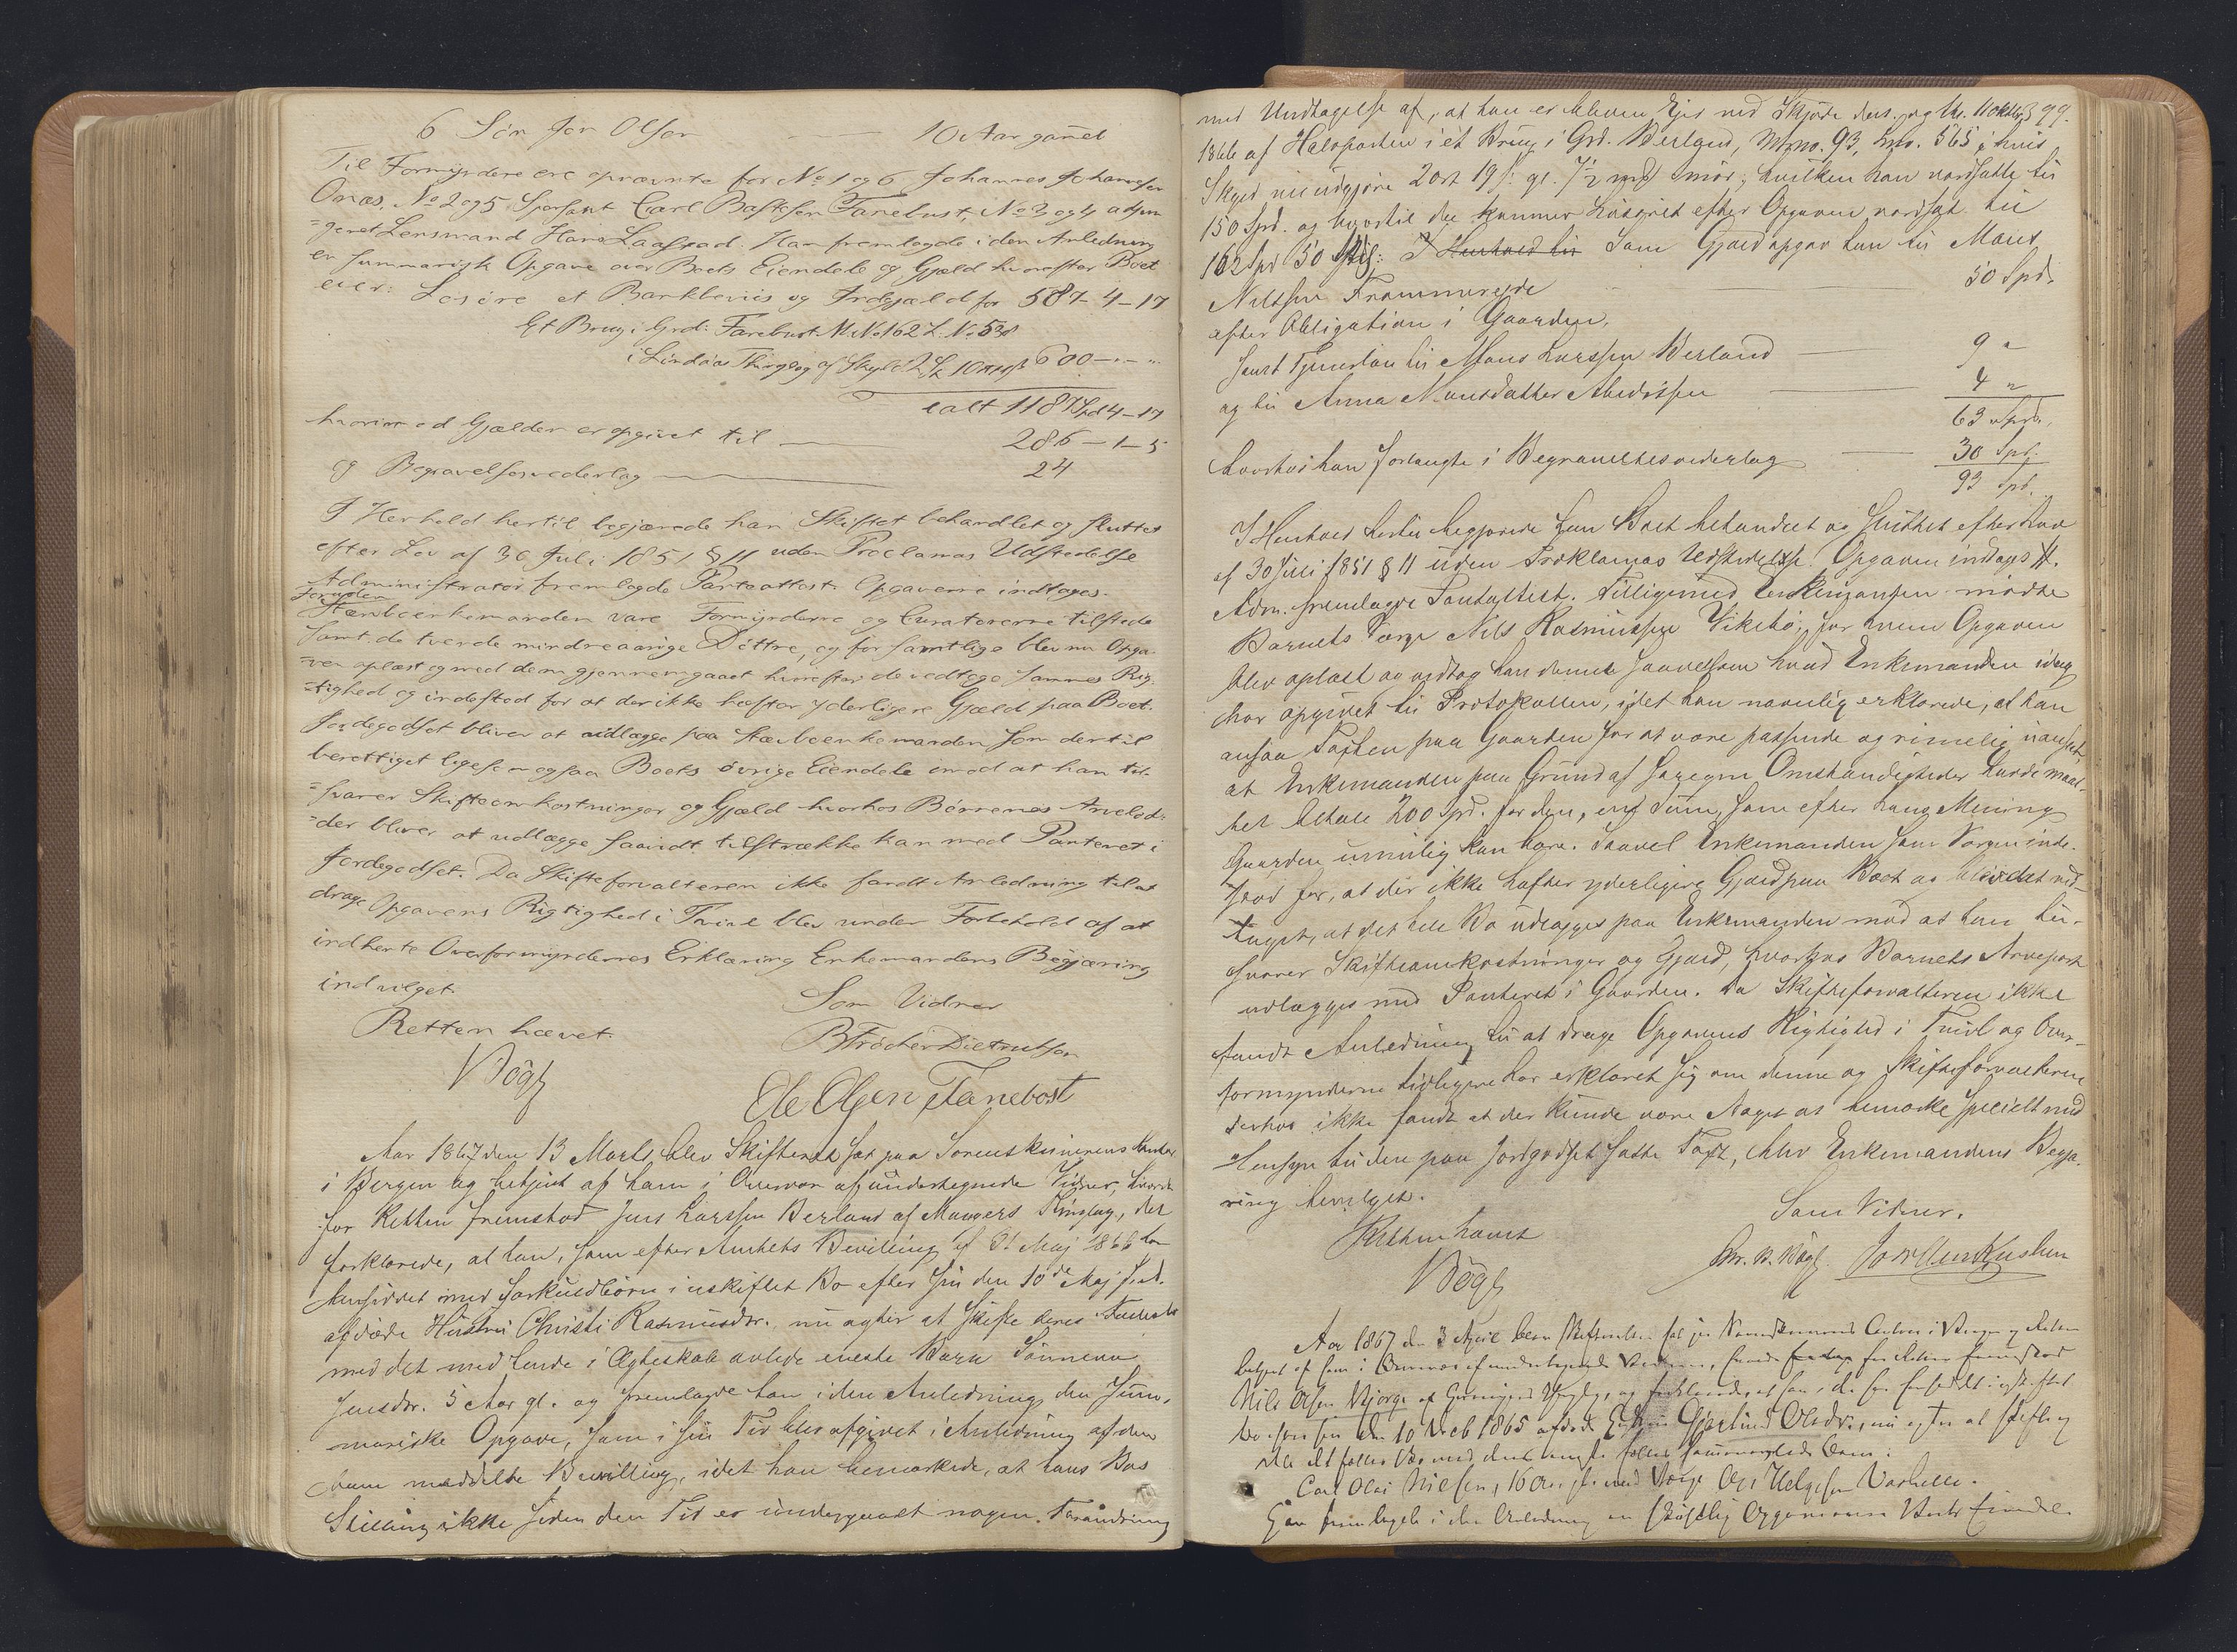 6 Søn Jon Olsen — 10 Aar gamel
Til Formyndere ere opnævnte for No 1 og 6 Johannes Johannessen
Onæs, No 2 og 5 Carl Fanebust, No 3 og 4
Lensmand Hans Han fremlagde i den Anledning
en summarisk Opgave over Boets Eiendele og Gjæld hvorefter Boet
eier: Løsøre et Bankbeviis og for 587-4-17
Et Brug i Grd: Fanebust M. No 162 L. No 538
i Lindaas Thinglag af Skyld 600 - " - "
ialt 1187 Spd 4-17
hvorimod Gjælden er opgivet til — 286-1-5
og Begravelsesvederlag — 24
I Henhold hertil begjærede han Skiftet behandlet og sluttet
efter Lov af 30 Juli 1851 § 11 uden Proclamas Udstedelse
Administrator fremlagde Opgaverne indtages.
Foruden
Stærvboenkemanden vare Formynderne og Curatorerne tilstede
samt de tvende mindreaarige Døttre, og for samtlige blev nu Opga-
=ven oplæst og med dem gjennemgaaet hvorefter de vedtoge sammes Rig-
=tighed og indestod for at der ikke hefter yderligere Gjæld paa Boet.
Jordegodset bliver at udlægge paa Stærvboenkemanden som dertil
berettiget ligesom ogsaa Boets øvrige Eiendele imod at han til-
=svarer Skifteomkostninger og Gjæld hvorhos Børnenes Arvelod-
=der bliver at udlægge saavidt tilstrække kan med Panteret i
Jordegodset. Da Skifteforvalteren ikke fandt Anledning til at
drage Opgavens Rigtighed i Tvivl blev under Forbehold af at
indhente Overformyndernes Erklæring Enkemandens Begjæring
indvilget.
Som Vidner
Retten hævet.
Vogt
Ole Olsen Fanebost
Aar 1867 den 13 Marts blev Skifteret sat paa Sorenskriverens Kontor
i Bergen og betjent af ham i Overvær af undertegnede Vidner, hvorda
for Retten fremstod Jens Larssen Berland af Mangers Thinglag, der
forklarede, at han, som efter Amtets Bevilling af 31 Maj 1866 har
hensiddet med særkuldbørn i uskiftet Bo efter sin den 10de Maj
afdøde Hustru Christi Rasmusdr. nu agter at skifte deres
med det med hende i Ægteskab avlede eneste Barn Sønneva
Jensdr. 5 Aar gl. og fremlagde han i den Anledning den sum-
mariske Opgave, som i sin Tid blev afgivet i Anledning af den
ham meddelte Bevilling, idet han bemærkede, at hans Bos
Stilling ikke siden den Tid er undergaaet nogen Forandring
med Undtagelse af, at han er bleven Ejer ved Skjøde 11 oktbr 399.
1866 af Halvparten i et Brug i Grd. Berland, Mtrno. 93, Lno. 565, i hvis
Skyld udgjøre 2 ort 19 s. gl. 1/2 smør, hvilken han værdsatte til
150 Spd. og hvortil der kommer Løsøret efter Opgaven værdsat til
162 Spd 50 I Henhold til Som Gjæld opgav han til Mons
Nilssen — 50 Spd.
efter Obligation i Gaarden,
samt Tjenerløn til Mons Larssen Berland — 9 "
og til Anna Monsdatter — 4 "
63 Spd.
hvorhos han forlangte i Begravelsesvederlag — 30 Spd.
93 Spd.
I Henhold hertil begjærede han Boet behandlet og sluttet efter Lov
af 30 Juli 1851 § 11 uden Proklamas Udstedelse. Opgaven indtages #.
Adm. fremlagde Tilligemed Enkemanden mødte
Barnets Værge Nils Rasmussen Vikebø, for hvem Opgaven
blev oplæst og vedtog han denne saavelsom hvad Enkemanden idag
har opgivet til Protokollen, idet han navnlig erklærede, at han
ansaa Taxten paa Gaarden for at være passende og rimelig uanseet
at Enkemanden paa Grund af særegne Omstændigheder havde maat-
tet betale 200 Spd. for den, en Sum, som efter hans Mening
Gaarden umulig kan bære. Saavel Enkemanden som Værgen inde-
stod for, at der ikke hæfter yderligere Gjæld paa Boet og blev det ved-
taget, at det hele Bo udlægges paa Enkemanden mod at han til-
svarer Skifteomkostninger og Gjæld, hvorhos Barnets Arvepart
udlægges med Panteret i Gaarden. Da Skifteforvalteren ikke
fandt Anledning til at drage Opgavens Rigtighed i Tvivl og Over-
formynderne tidligere har erklæret sig om denne og Skifteforvalteren
derhos ikke fandt at der kunde være Noget at bemærke specielt med
Hensyn til den paa Jordgodset satte Taxt, blev Enkemandens Begjæ-
ring bevilget.
Som Vidner.
Retten hævet
Vogt
Chr. B. Vogt.
Aar 1867 den 3 April blev Skifteretten sat paa Sorenskriverens Contor i Bergen og Retten
betjent af ham i Overvær af undertegnede Vidner, hvorda for Retten fremstod
Nils Olsen Bjørge af og forklarede, at han, der har hensiddet i uskiftet
Bo efter sin den 10 Decb 1865 afdøde Hustru Gjertrud Olsdr., nu agter at skifte og
dele det fælles Bo med deres
Carl Olai Nielsen, 16 Aar med Værge Ole Helgesen
Han fremlagde i den Anledning en skriftlig Opgave over Boets Eiendele